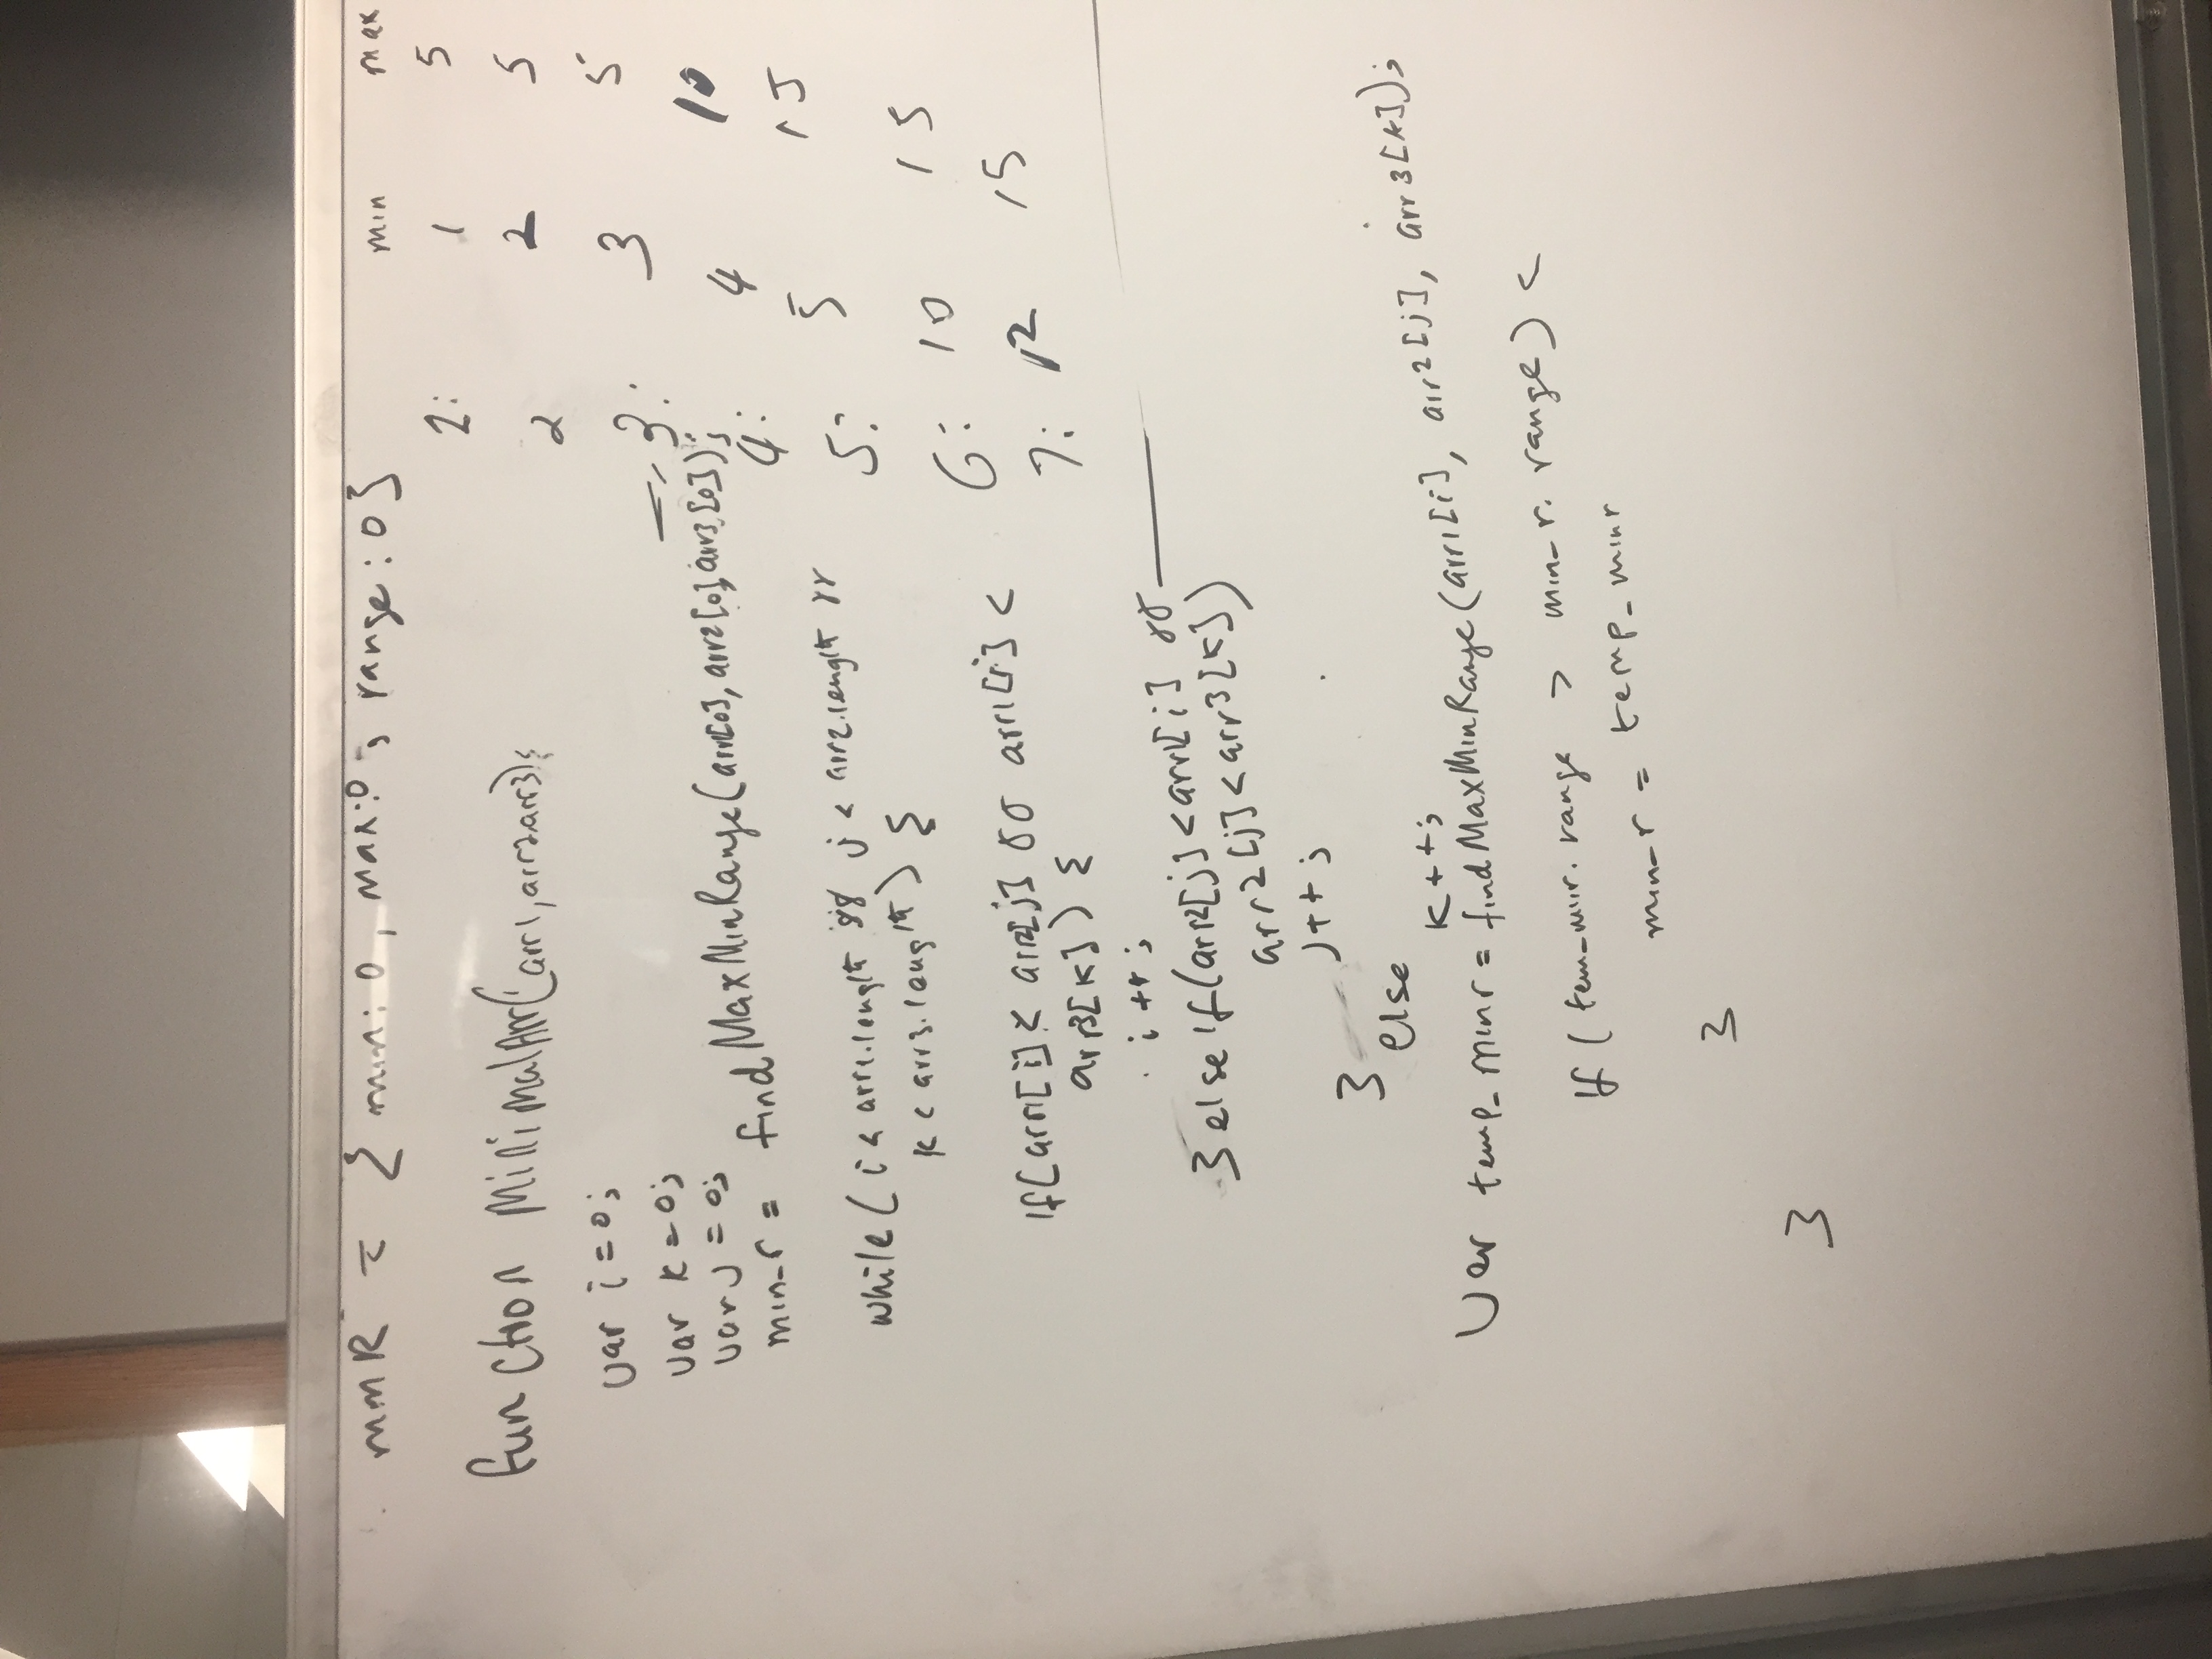 mmR = { min: 0, max:0, range: 0}
function MinimalArr(arr1,arr2,arr3){
var i=0;
var k=0;
var j=0;
min_r = findMaxMinRange(arr1[0], arr2[0],arr3[0]);
while( i< arr1.length && j < arr2.length &&
k < arr3.length) {
if(arr1[i] < arr2[j] && arr1[i] <
arr3[k]) {
i++;
} else if(arr2[j]<arr1[i] &&
arr2[j]<arr3[k])
j++;
}
else
k++;
Var temp_minr = findMaxMinRange(arr1[i], arr2[j], arr3[k]);
if( tem_minr.range > min_r.range) <
min_r = temp_minr
}
}
min max
2: 1 5
2 2 5
3: 3 5
4: 4 10
5: 5 15
6: 10 15
7: 12 15